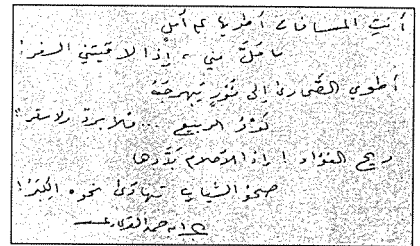 أنتِ المسافات أطويها على أمل
ما ملَّ مني ، إذا لاقيتني السفر!
أطوي الصحارى إلى نور يبهرجه
نَوْرُ الربيع ... فلا برد ولا سقر!
ريح الفؤاد! إذا الأحلام بددها
صحو الشباب تهادى نحوه الكبر!